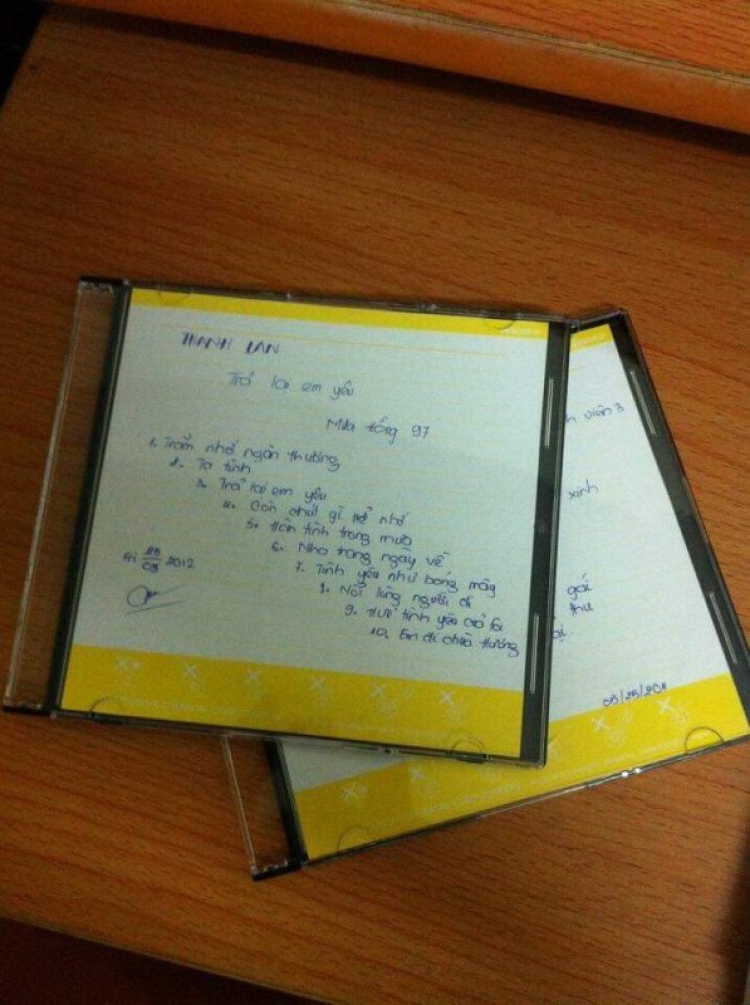 THANH LAN
Trả lại em yêu
Mưa hồng 97
1. Trăm nhớ ngàn thương
2. Tạ tình
3. Trả lại em yêu
4. Còn chút gì để nhớ
5. Hẹn tình trong mưa
6. Nha trang ngày về
7. Tình yêu như bóng mây
8. Nỗi lòng người đi
9. Huế tình yêu của tôi
10. Em đi chùa Hương
Fri 25/05 2012
viên 3
xinh
gái
thu
05/25/2011